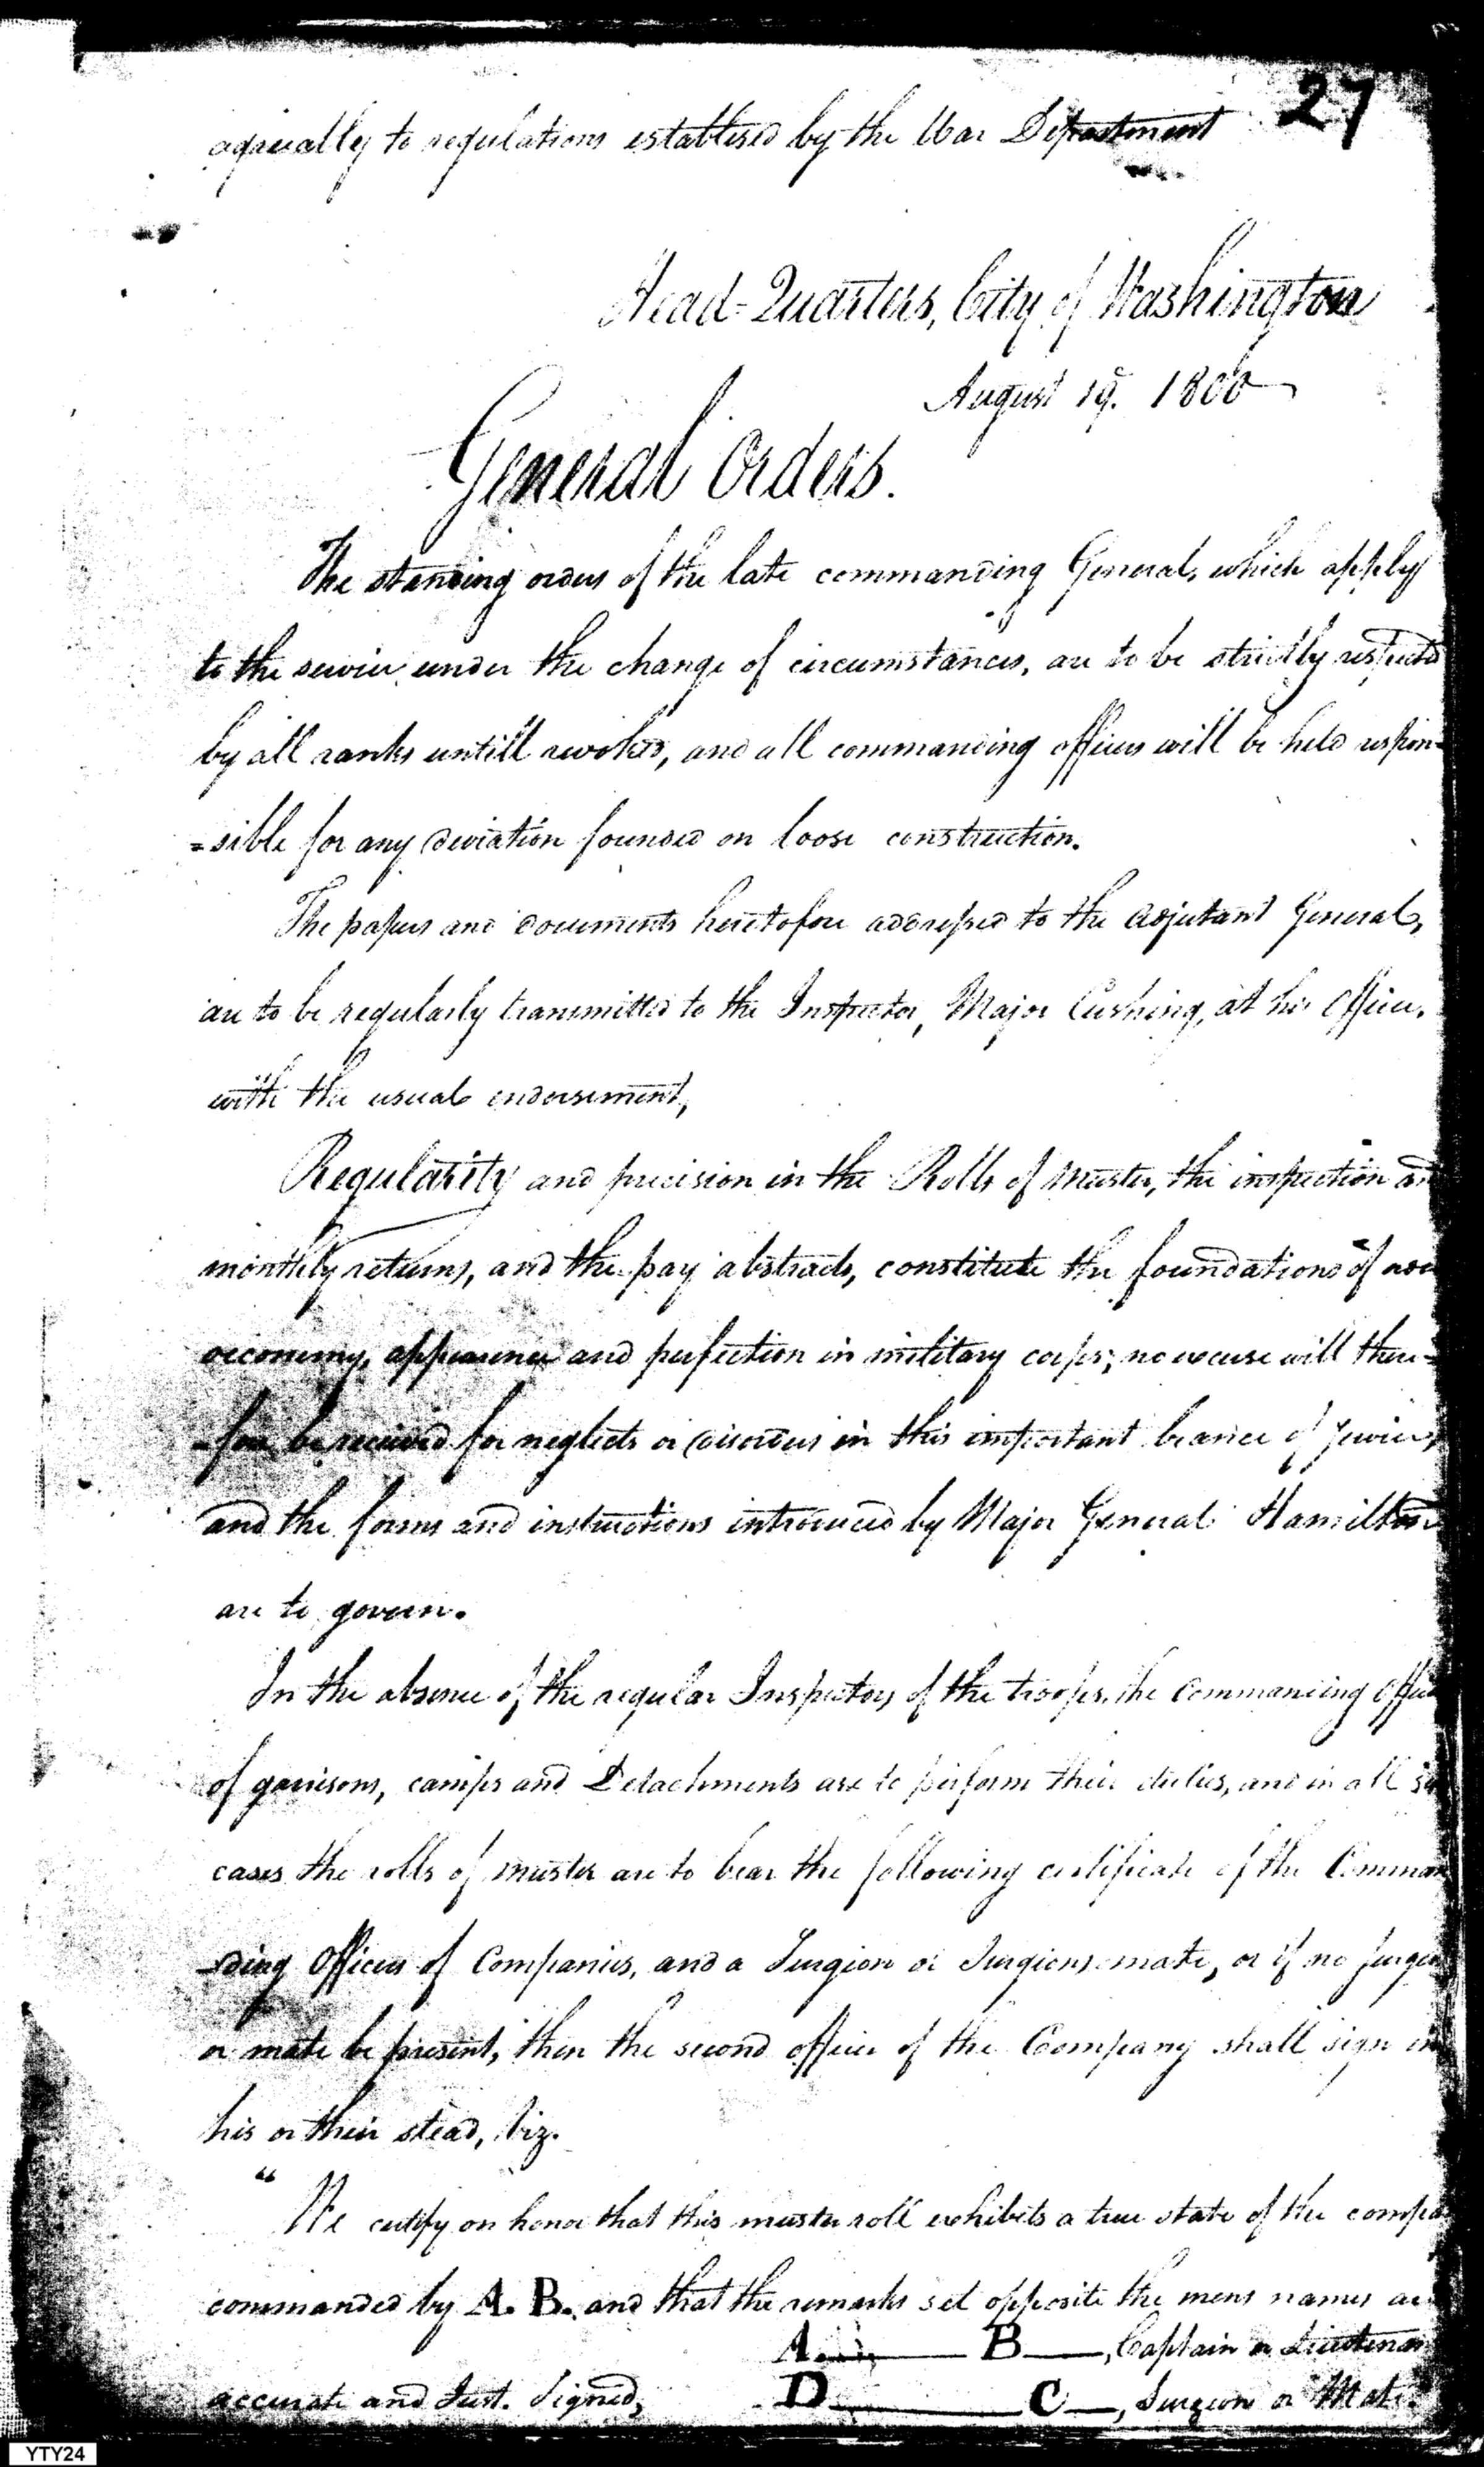 27
agreeally to regulations establised by the War Department
Head-Quarters, City of Washington
August 19. 1800
General Orders.
The standing orders of the late commanding General, which apply
to the service under the change of circumstances, are to be strictly respected
by all ranks untill revoked, and all commanding officers will be held respon-
=sible for any deviation founded on loose construction.
The papers and documents heretofore addressed to the Adjutant General,
are to be regularly transmitted to the Inspector, Major Cushing, at his Office,
with the usual endorsement,
Regularity and precision in the Rolls of Muster, the inspection and
monthly returns, and the pay abstracts, constitute the foundations of
oeconomy, appearance and perfection in military corps; no excuse will there=
=fore be received for neglects or disorders in this important brance of service,
and the forms and instructions introduced by Major General Hamilton
are to govern.
In the absence of the regular Inspectors of the troops, the Commanding
of garrisons, camps and Detachments are to perform their duties, and in all
cases the rolls of muster are to bear the following certificate of the Comman
-ding Officers of Companies, and a Surgion or Surgions mate, or if no Surgion
or mate be present, then the second officer of the Company shall sign in
his or their stead, viz.
"We certify on honor that this muster roll exhibits a true state of the compa
commanded by A. B. and that the remarks set opposite the mens names are
A. B, Captain or Lieutenan
accurate and Just. Signed, D C, Surgeon or Mate
YTY24